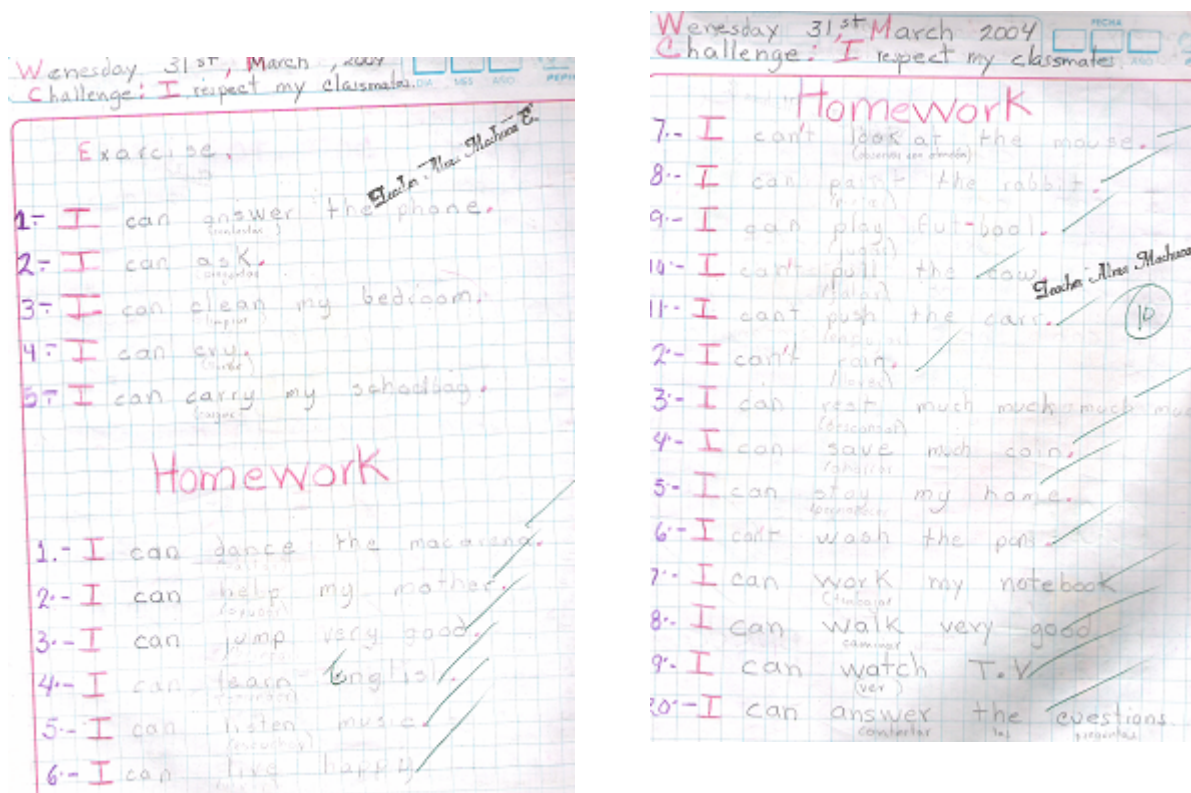 Wenesday 31st, March , 2004
Challenge: I respect my classmates.
Exarcise.
Teacher Alma Machuca E.
1.- I can answer the phone.
(contestar)
2.- I can ask.
3.- I can clean my bedroom.
(limpiar)
4.- I can cry.
5.- I can carry my schoolbag.
(cargar)
Homework
1.- I can dance the macarena.
2.- I can help my mother.
(ayudar)
3.- I can jump very good.
4.- I can learn English.
5.- I can listen music.
(escuchar)
6.- I can live happy
Wenesday 31,st March 2004
FECHA
Challenge: I respect my classmates.
Homework
7.- I can't look at the mouse.
8.- I can paint the rabbit.
9.- I can play fut-bool.
(jugar)
10.- I can't pull the cow.
(jalar)
Teacher Alma Machuca
11.- I can't push the carr.
10
2.- I can't rain.
(llover)
3.- I can rest much much much
(descansar)
4.- I can save much coin.
5.- I can stay my home.
(permanecer)
6.- I can't wash the pans.
7.- I can work my notebook
(trabajar
8.- I can walk very good
caminar
9.- I can watch T.V
(ver)
20.- I can answer the cuestions.
contestar las preguntas